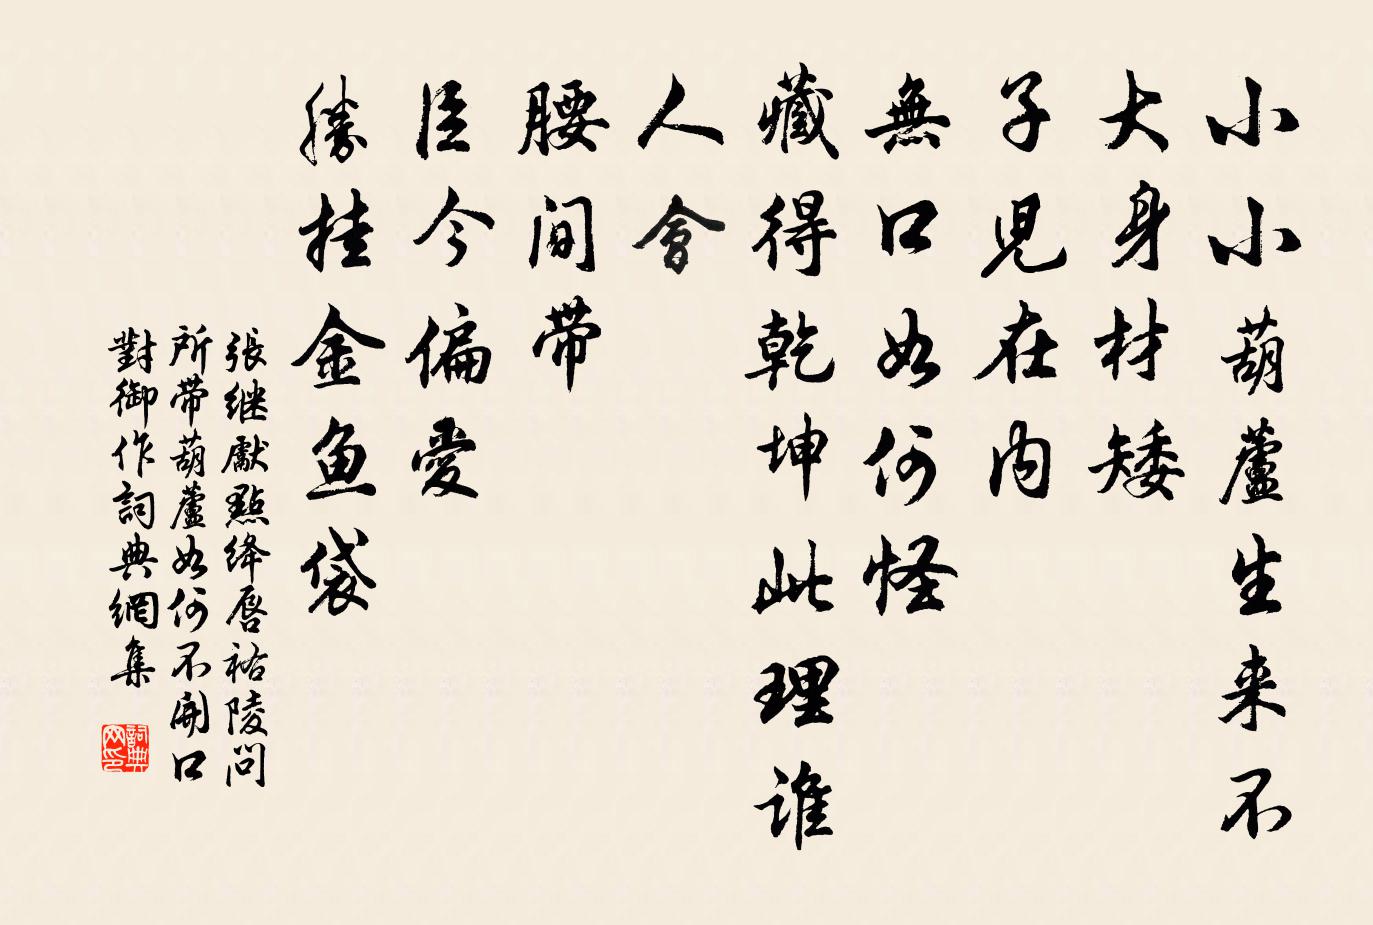 小小葫蘆生来不
大身材矮
子児在内
無口如何怪
藏得乾坤此理谁
人會
腰间带
臣今偏愛
勝挂金鱼袋
張継獻點绛唇祐陵問
所带葫蘆如何不開口
對御作詞典網集
詞典网印